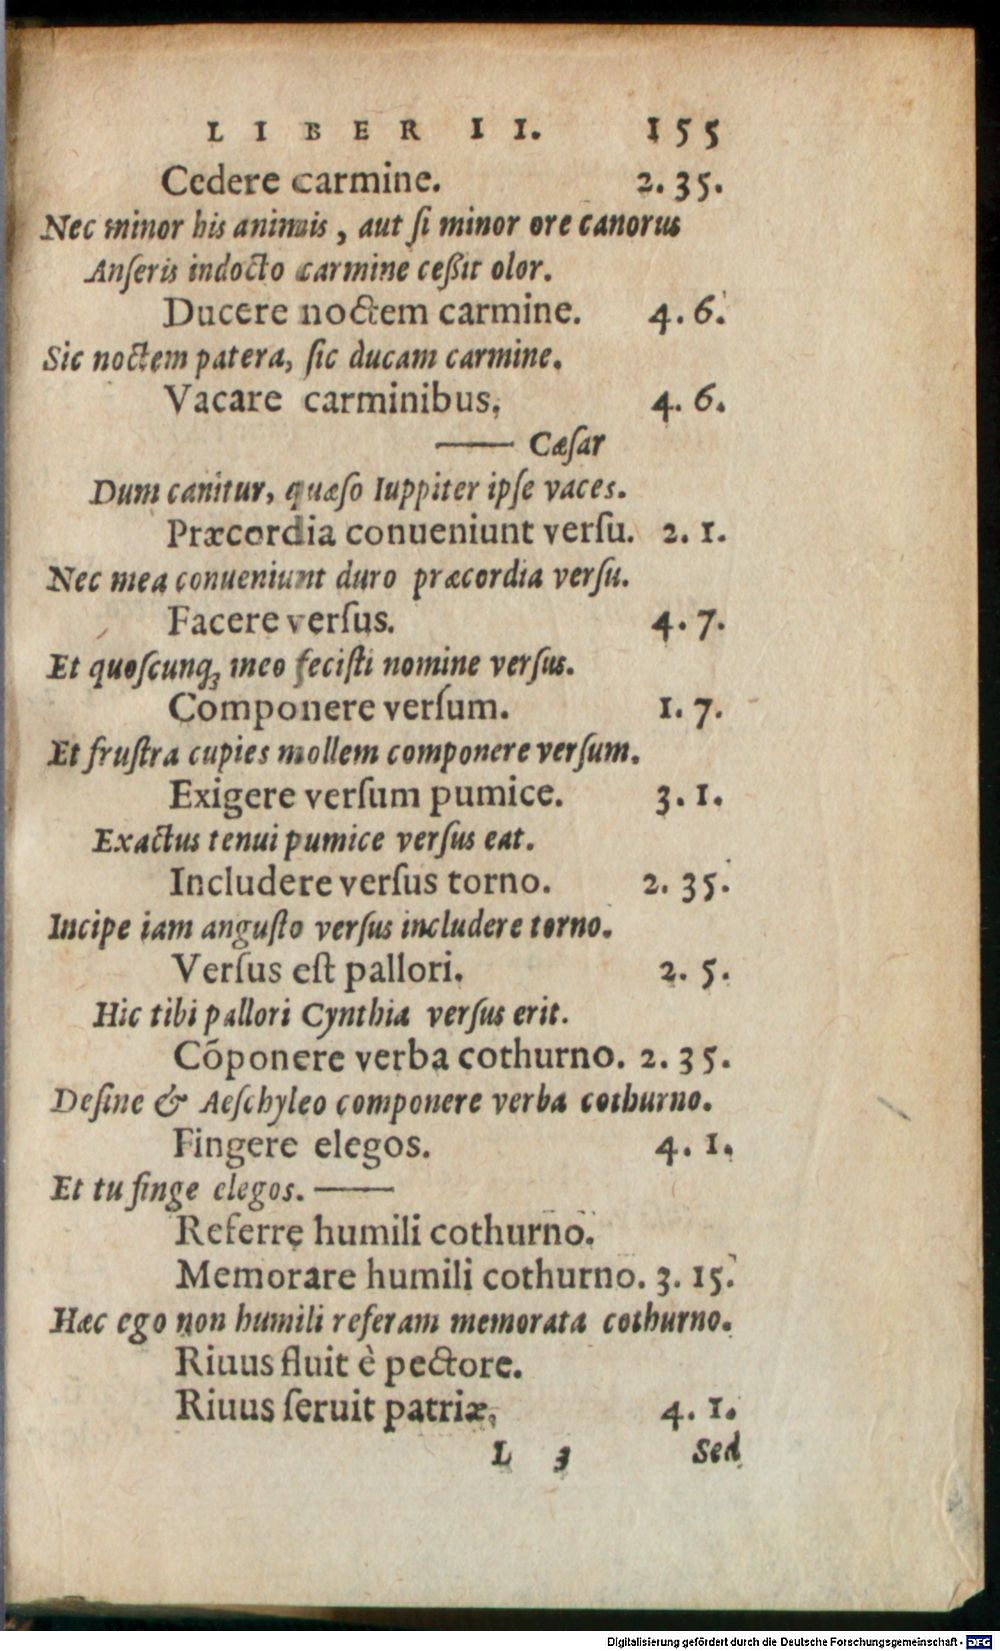 LIBER II. 155
Cedere carmine. 2. 35.
Nec minor his animis, aut ſi minor ore canorus
Anſeris indocto carmine ceßit olor.
Ducere noctem carmine. 4. 6.
Sic noctem patera, ſic ducam carmine.
Vacare carminibus. 4. 6.
—— Cæſar
Dum canitur, quæſo Iuppiter ipſe vaces.
Præcordia conueniunt verſu. 2. 1.
Nec mea conueniunt duro præcordia verſu.
Facere verſus. 4. 7.
Et quoſcunq; meo feciſti nomine verſus.
Componere verſum. 1. 7.
Et fruſtra cupies mollem componere verſum.
Exigere verſum pumice. 3. 1.
Exactus tenui pumice verſus eat.
Includere verſus torno. 2. 35.
Incipe iam anguſto verſus includere torno.
Verſus eſt pallori. 2. 5.
Hic tibi pallori Cynthia verſus erit.
Cõponere verba cothurno. 2. 35.
Deſine & Aeſchyleo componere verba cothurno.
Fingere elegos. 4. 1.
Et tu finge elegos. ——
Referre humili cothurno.
Memorare humili cothurno. 3. 15.
Hæc ego non humili referam memorata cothurno.
Riuus fluit è pectore.
Riuus ſeruit patriæ. 4. 1.
L 3 Sed
Digitalisierung gefördert durch die Deutsche Forschungsgemeinschaft - DFG